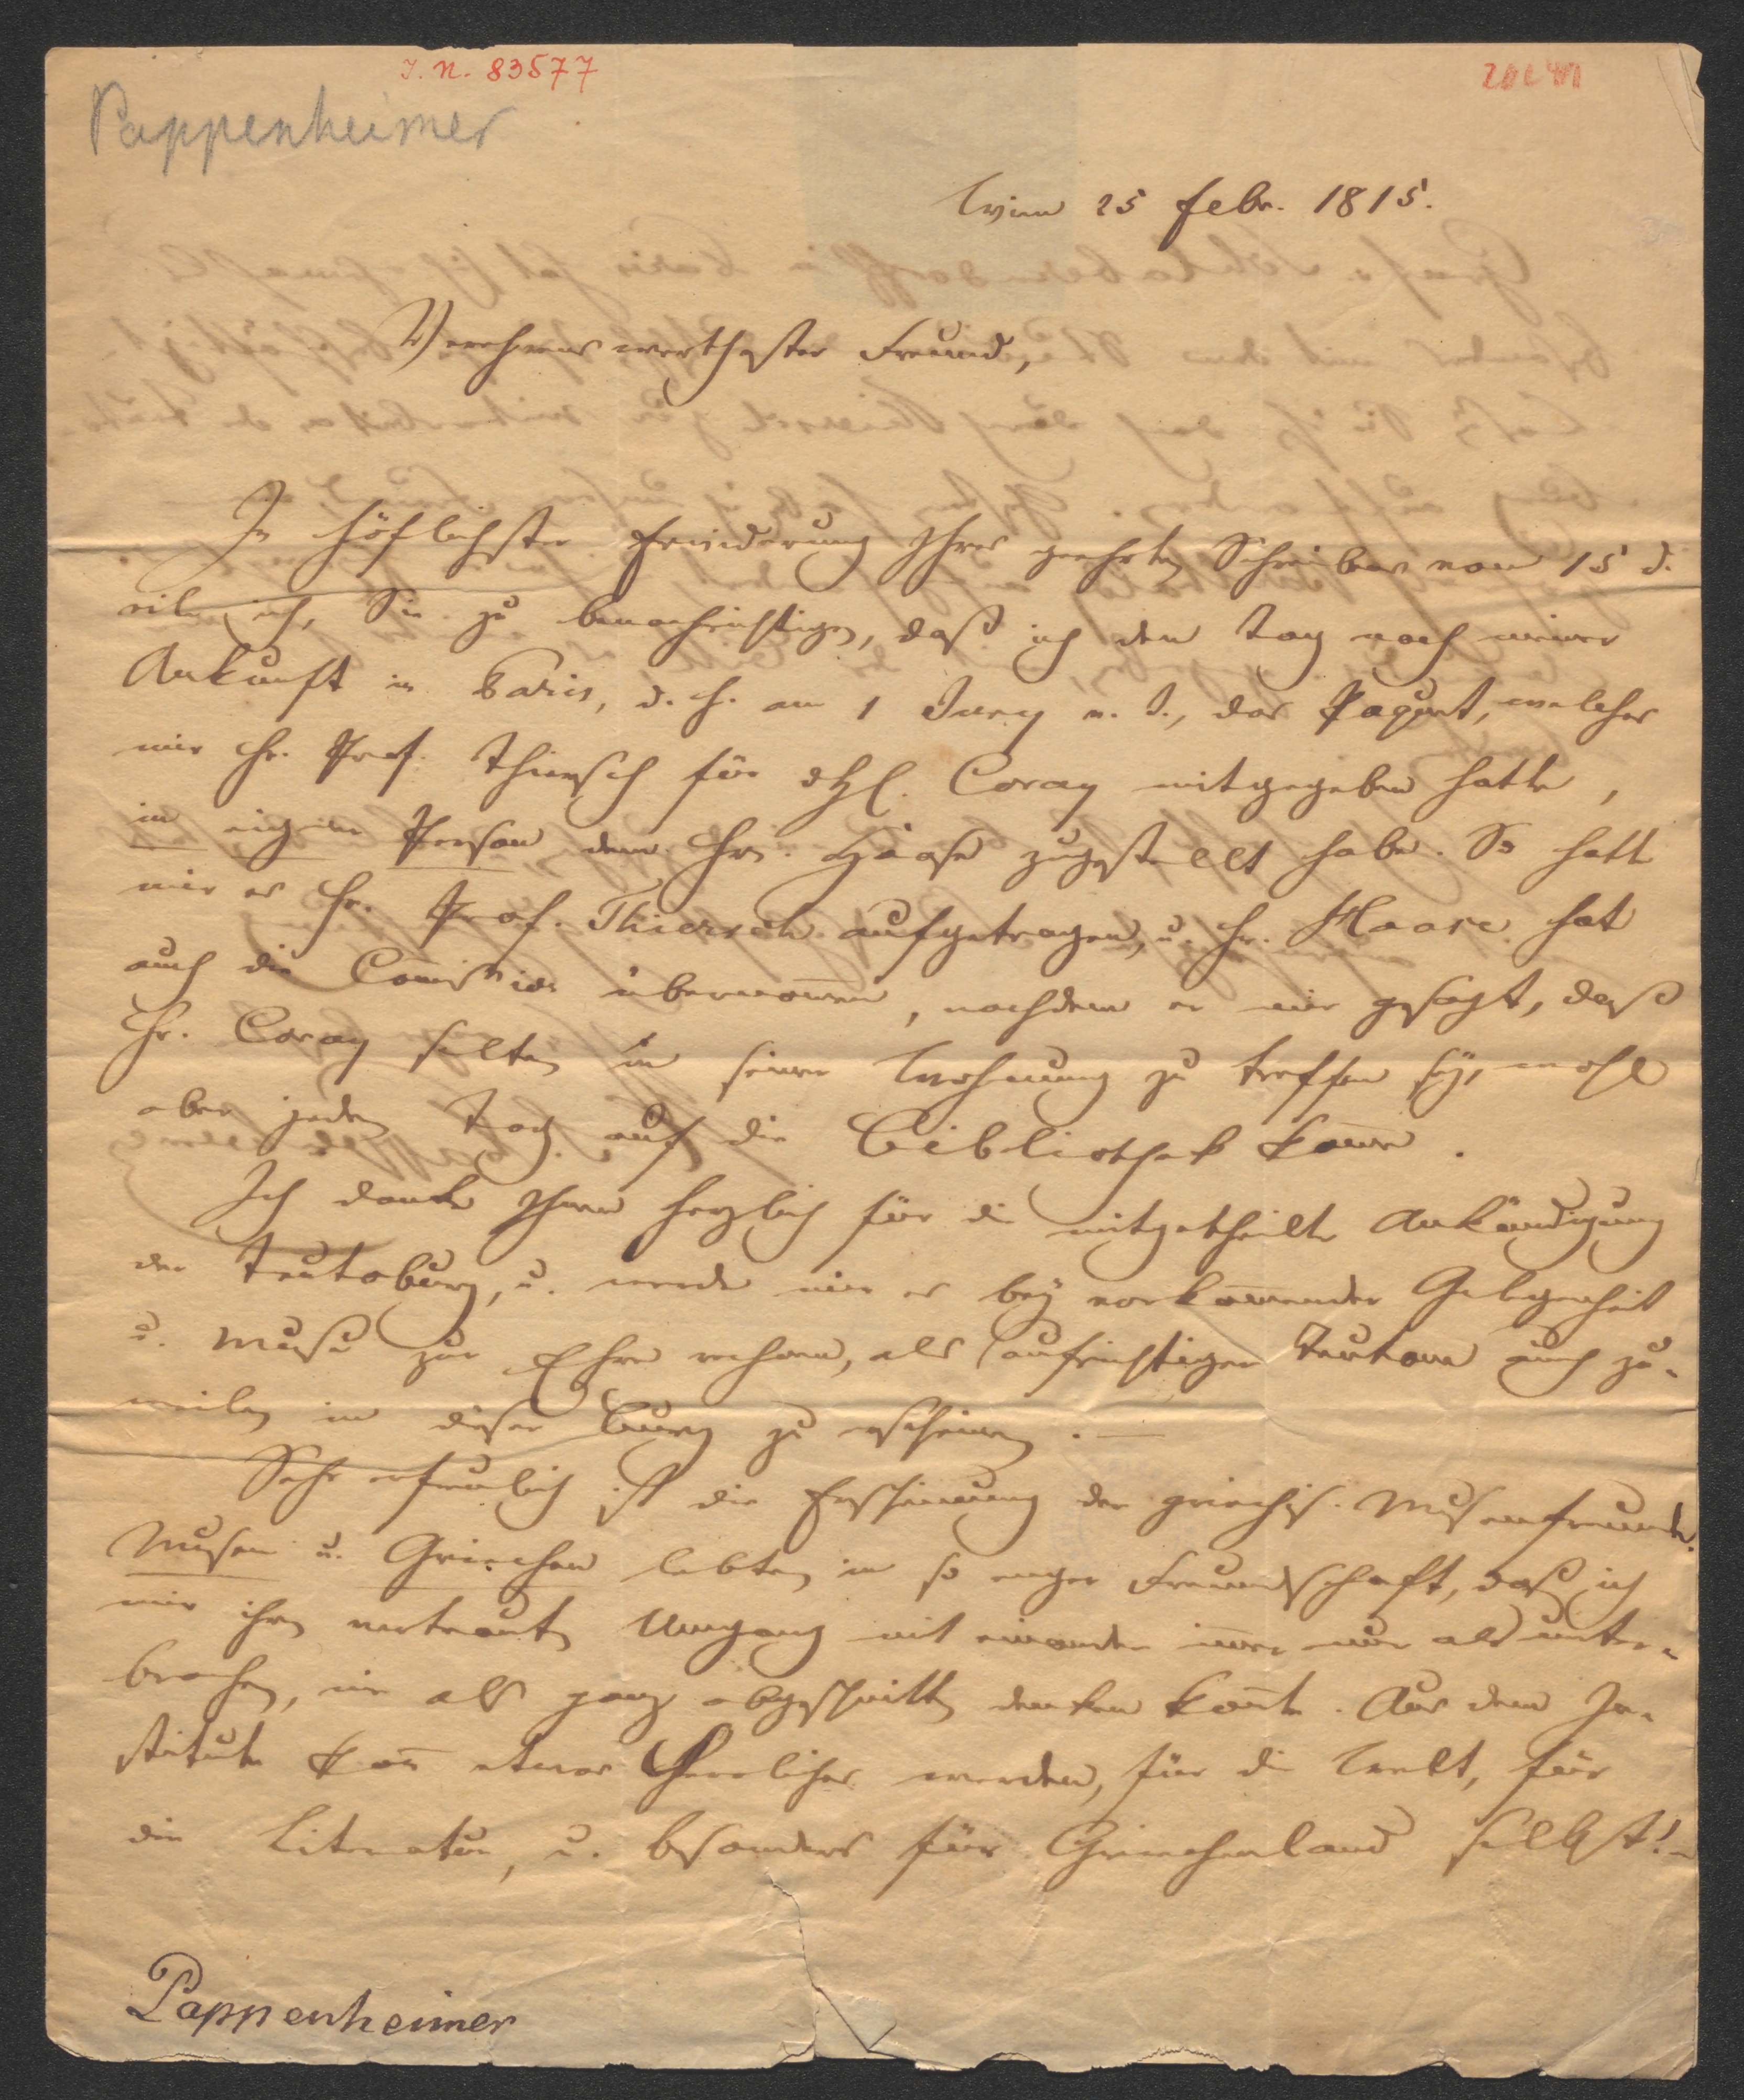 J. N. 83577
Pappenheimer
Wien 25 Febr. 1815.
Verehrenswerthester Freund,
In höflichster Erwiderung Ihres geehrten Schreibens vom 15 d.
eile ich, Sie zu benachrichtigen, daß ich den Tag nach meiner
Ankunft in Paris, d. h. am 1 Juny v. J., das Paquet, welches
mir Hr. Prof. Thiersch für Coray mitgegeben hatte,
in eigner Person dem Hrn. Haase zugestellt habe. So hatte
mir es Hr. Prof. Thiersch aufgetragen, u. Hr. Haase hat
auch die Com̄ission übernom̄en, nachdem er mir gesagt, daß
Hr. Coray selten in seiner Wohnung zu treffen sey, wohl
aber jeden Tag auf die Bibliothek kom̄e.
Ich danke Ihnen herzlich für die mitgetheilte Ankündigung
der Teutoburg, u. werde mir es bey vorkom̄ender Gelegenheit
u. Muße zur Ehre rechnen, als aufrichtiger Teutone auch zu-
weilen in dieser Burg zu erscheinen. —
Sehr erfreulich ist die Erscheinung der griechis. Musenfreunde.
Musen u. Griechen lebten in so enger Freundschaft, daß ich
mir ihren vertrauten Umgang mit einander im̄er nur als unter-
brochen, nie als ganz abgeschnitten denken kon̄te. Aus dem In-
stitute kan̄ etwas Herrliches werden, für die Welt, für
die Literatur, u. besonders für Griechenland selbst! –
Pappenheimer